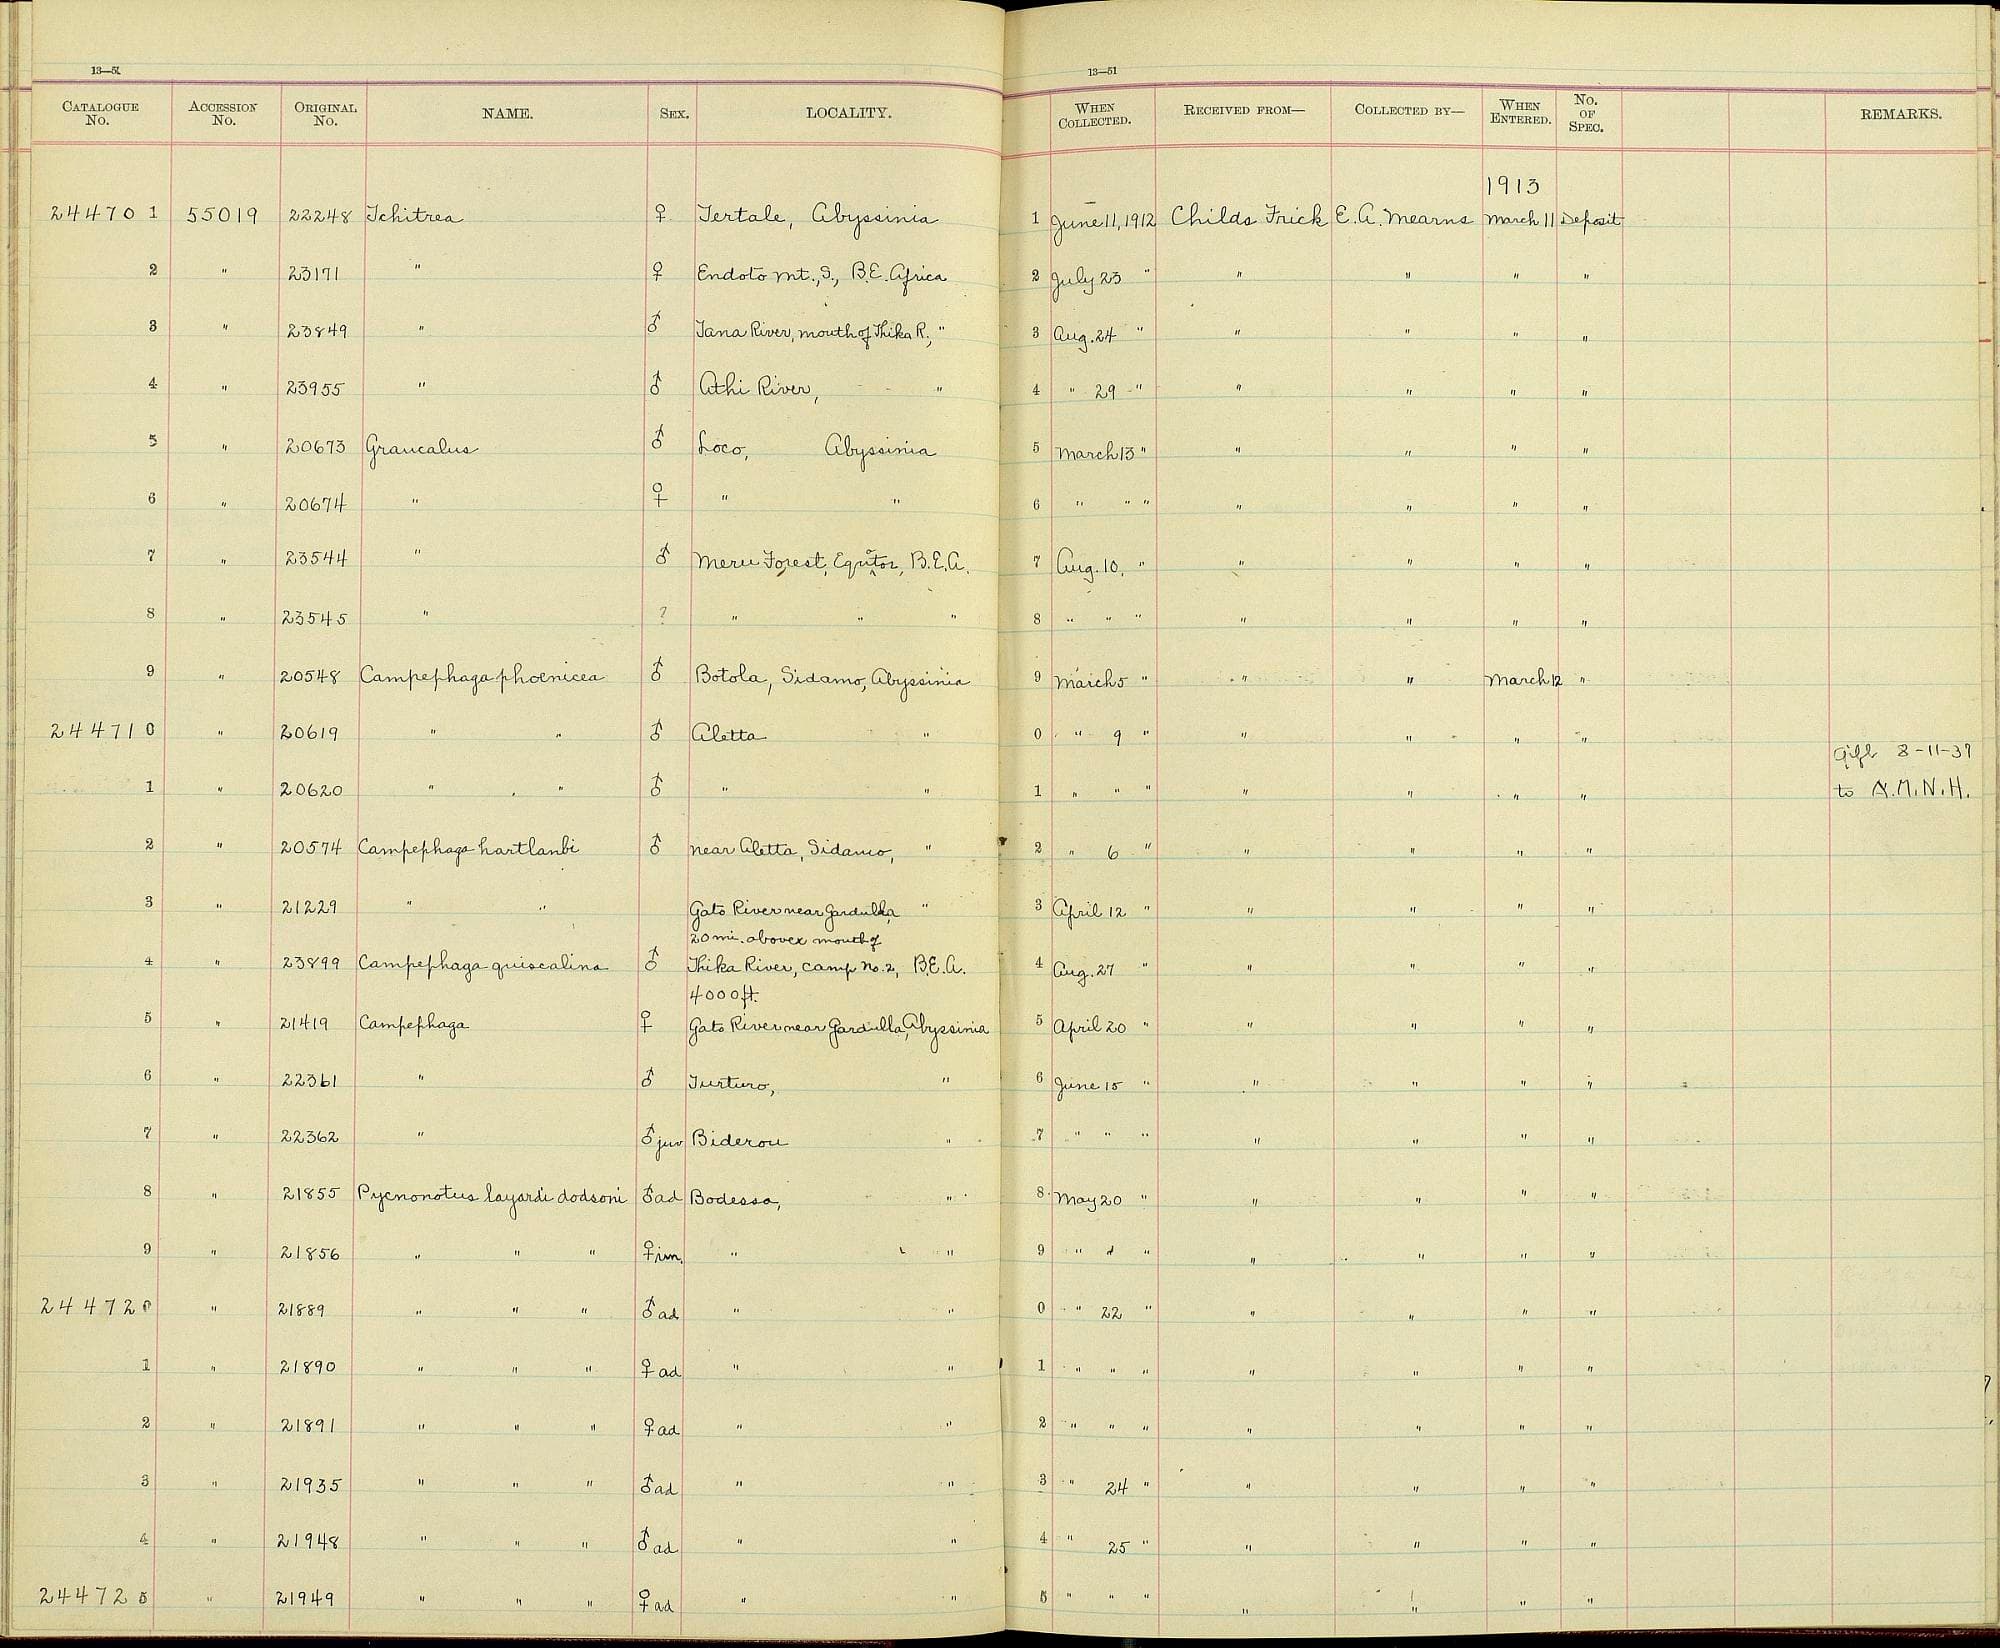 13—51 13—51
CATALOGUE No. ACCESSION No. ORIGINAL No. NAME. SEX. LOCALITY. WHEN COLLECTED. RECEIVED FROM— COLLECTED BY— WHEN ENTERED. No. OF SPEC. REMARKS.
1913
244701 55019 22248 Tchitrea ♀ Tertale, Abyssinia 1 June 11, 1912 Childs Frick E. A. Mearns March 11 Deposit
2 " 23171 " ♀ Endoto Mt., S., B.E. Africa 2 July 23 " " " " "
3 " 23849 " ♂ Tana River, mouth of Thika R., " 3 Aug. 24 " " " " "
4 " 23955 " ♂ Athi River, " 4 " 29 " " " " "
5 " 20673 Graucalus ♂ Loco, Abyssinia 5 March 13 " " " " "
6 " 20674 " ♀ " " 6 " " " " " " "
7 " 23544 " ♂ Meru Forest, Equator, B.E.A. 7 Aug. 10, " " " " "
8 " 23545 " ? " " " 8 " " " " " " "
9 " 20548 Campephaga phoenicea ♂ Botola, Sidamo, Abyssinia 9 March 5 " " " March 12 "
244710 " 20619 " " ♂ Aletta " 0 " 9 " " " " "
Gift 8-11-37
1 " 20620 " " ♂ " " 1 " " " " " " " to A.M.N.H.
2 " 20574 Campephaga hartlaubi ♂ near Aletta, Sidamo, " 2 " 6 " " " " "
3 " 21229 " " Gato River near Gardulla, " 3 April 12 " " " " "
20 mi. above mouth of
4 " 23899 Campephaga quiscalina ♂ Thika River, camp No. 2, B.E.A. 4 Aug. 27 " " " " "
4000 ft.
5 " 21419 Campephaga ♀ Gato River near Gardulla, Abyssinia 5 April 20 " " " " "
6 " 22361 " ♂ Turturo, " 6 June 15 " " " " "
7 " 22362 " ♂ juv Biderou " 7 " " " " " " "
8 " 21855 Pycnonotus layardi dodsoni ♂ ad Bodessa, " 8 May 20 " " " " "
9 " 21856 " " " ♀ im. " " 9 " " " " " " "
244720 " 21889 " " " ♂ ad " " 0 " 22 " " " " "
1 " 21890 " " " ♀ ad " " 1 " " " " " " "
2 " 21891 " " " ♀ ad " " 2 " " " " " " "
3 " 21935 " " " ♂ ad " " 3 " 24 " " " " "
4 " 21948 " " " ♂ ad " " 4 " 25 " " " " "
244725 " 21949 " " " ♀ ad " " 5 " " " " " " "